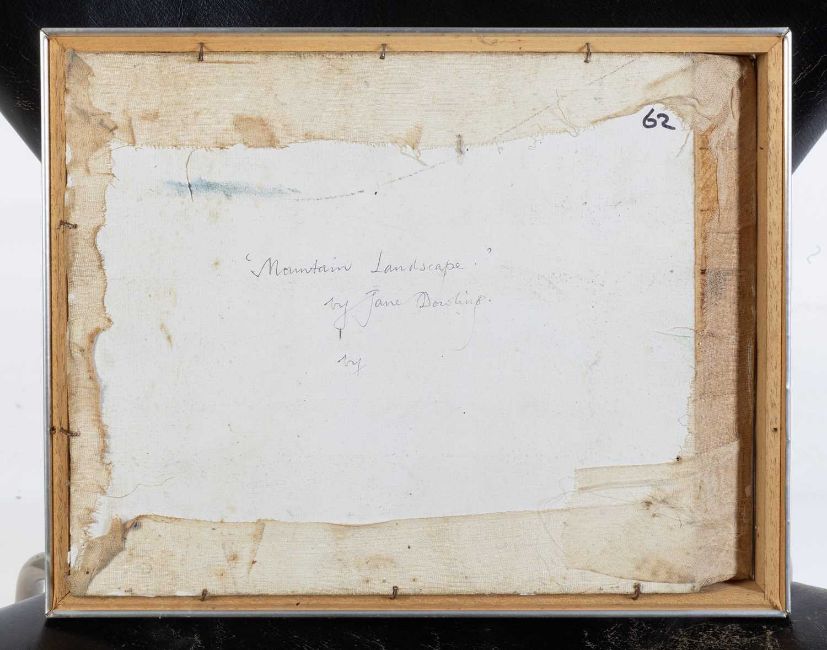 62
'Mountain Landscape.'
by Jane Dowling.
by